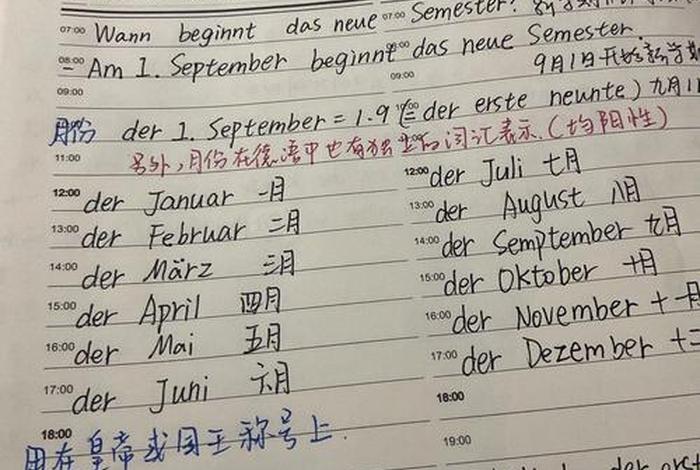 07:00 Wann beginnt das neue 07:00 Semester?
08:00 Am 1. September beginnt das neue Semester.
09:00 09:00 9月1日开始新学期
月份 der 1. September = 1.9 (= der erste neunte) 九月1
11:00 另外,月份在德语中也有独立的词汇表示.(均阳性)
12:00 der Januar 一月
13:00 der Februar 二月
14:00 der März 三月
15:00 der April 四月
16:00 der Mai 五月
17:00 der Juni 六月
12:00 der Juli 七月
13:00 der August 八月
14:00 der Semptember 九月
15:00 der Oktober 十月
16:00 der November 十一月
17:00 der Dezember 十二
18:00
19:00
18:00 用在皇帝或国王称号上.